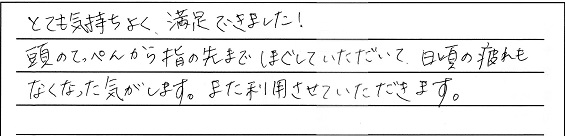 とても気持ちよく、満足できました！
頭のてっぺんから指の先までほぐしていただいて、日頃の疲れも
なくなった気がします。また利用させていただきます。